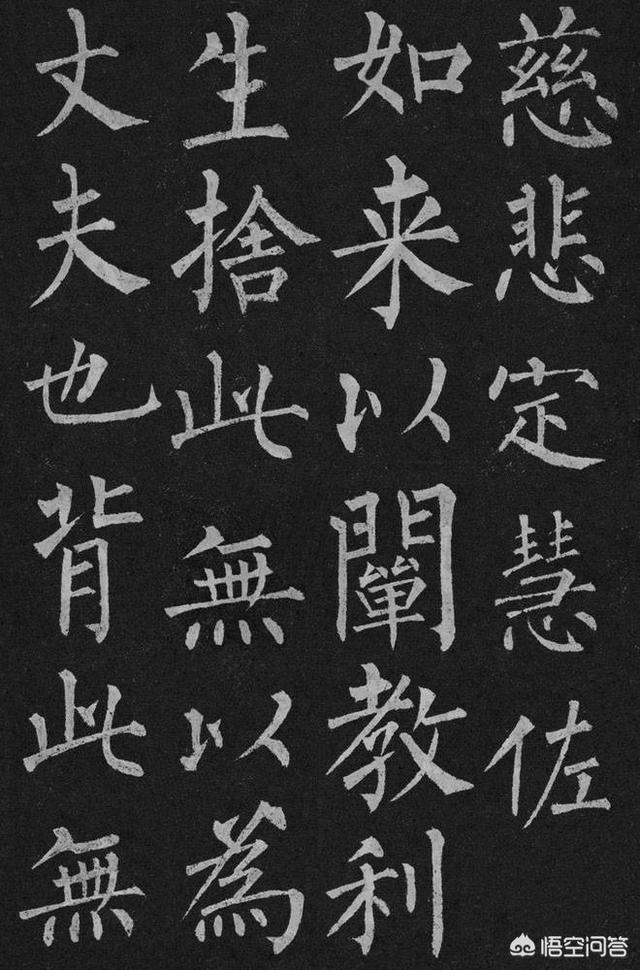 慈悲定慧佐
如来以闡教利
生捨此無以為
丈夫也背此無
悟空问答